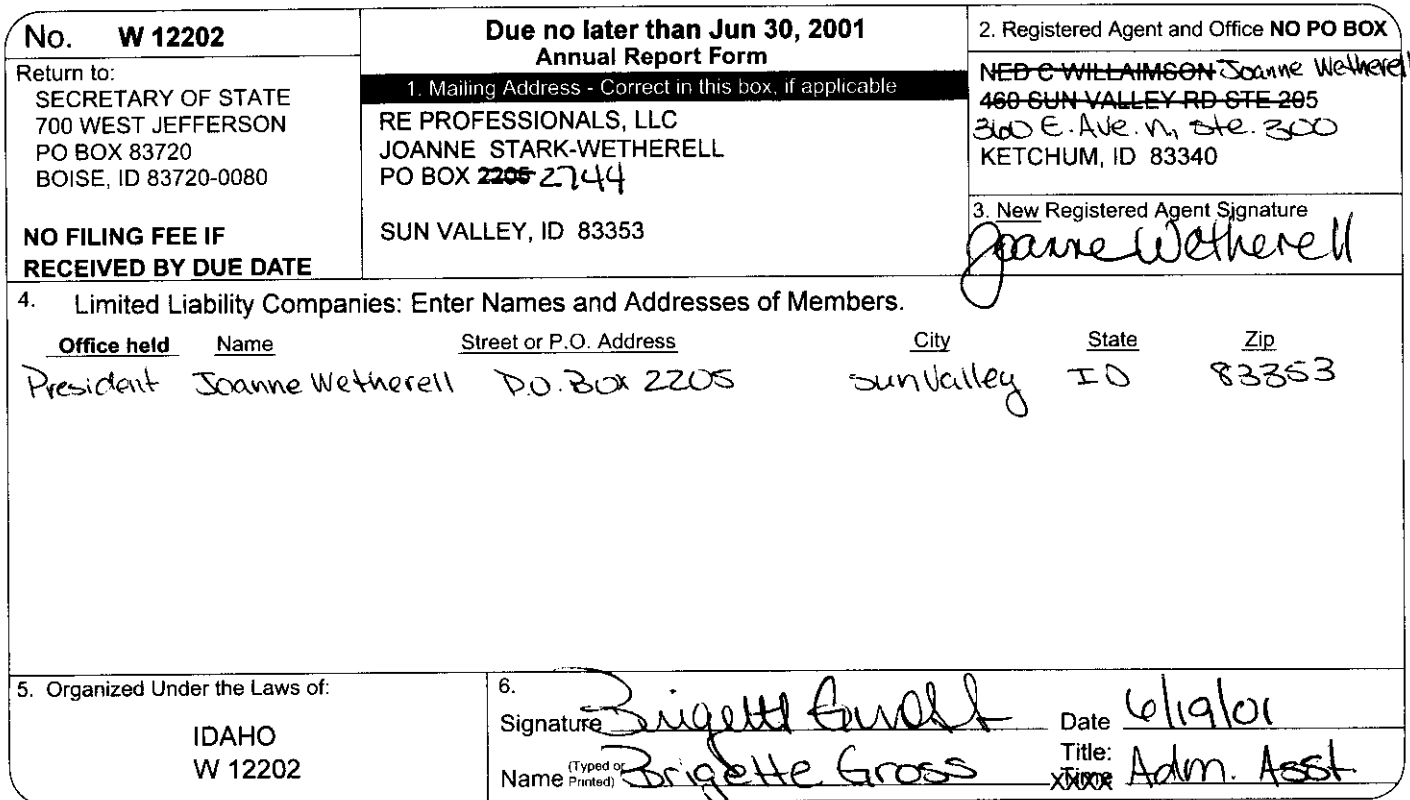 No. W 12202
Return to:
SECRETARY OF STATE
700 WEST JEFFERSON
PO BOX 83720
BOISE, ID 83720-0080
NO FILING FEE IF
RECEIVED BY DUE DATE
Due no later than Jun 30, 2001
Annual Report Form
1. Mailing Address - Correct in this box, if applicable
RE PROFESSIONALS, LLC
JOANNE STARK-WETHERELL
PO BOX 2205 2744
SUN VALLEY, ID 83353
2. Registered Agent and Office NO PO BOX
NED C WILLAIMSON Joanne Wetherell
460 SUN VALLEY RD STE 205
360 E. Ave. N, Ste. 300
KETCHUM, ID 83340
3. New Registered Agent Signature
Joanne Wetherell
4. Limited Liability Companies: Enter Names and Addresses of Members.
Office held Name Street or P.O. Address City State Zip
President Joanne Wetherell P.O. Box 2205 sun Valley ID 83353
5. Organized Under the Laws of:
IDAHO
W 12202
6.
Signature Date 6/19/01
Name (Typed or Printed) Brigette Gross Title: Adm. Asst